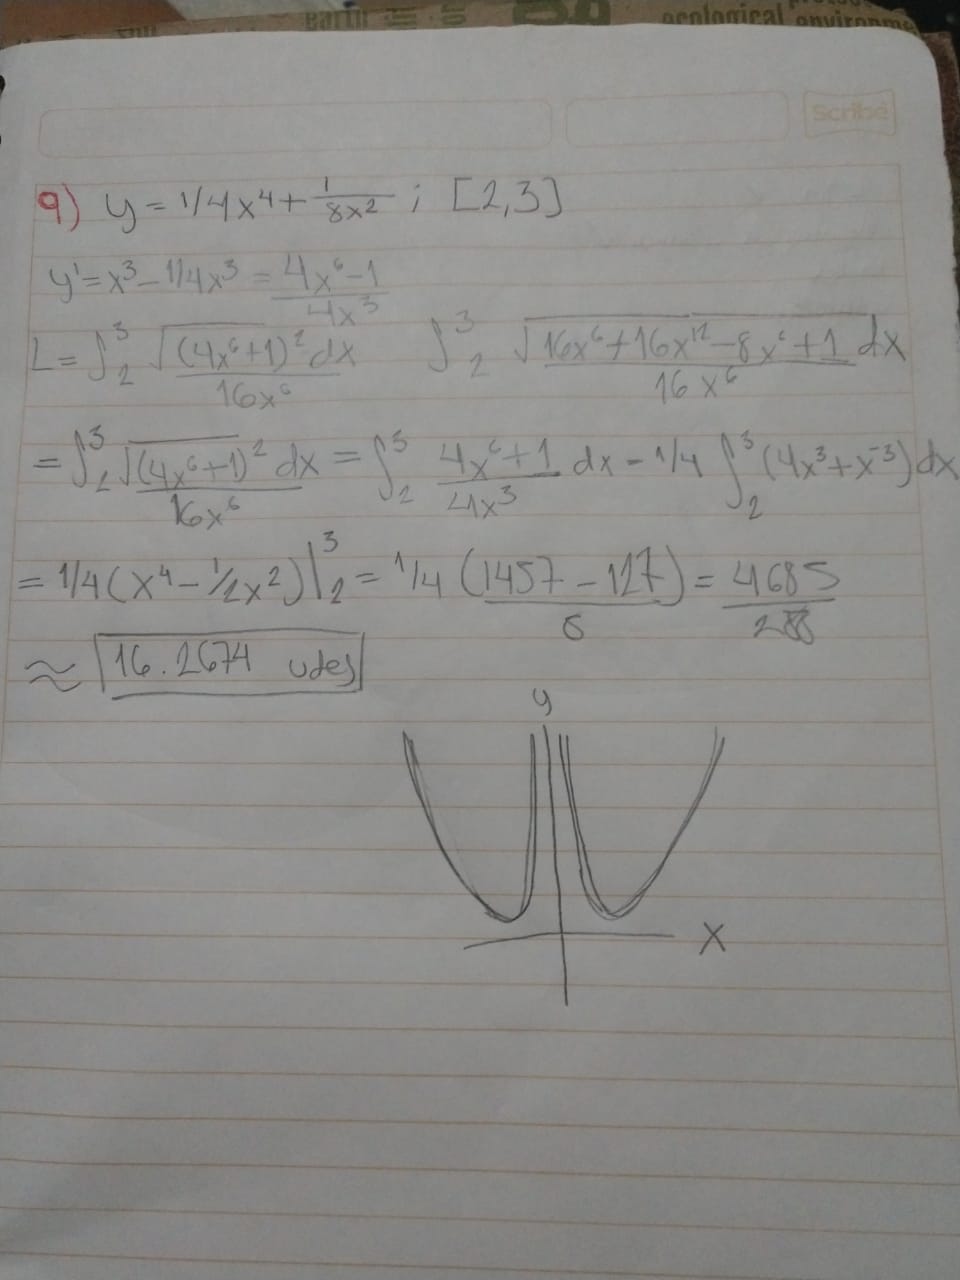 Earth
ecological environme
Scribe
9) y = 1/4x⁴ + 1/8x² ; [2,3]
y' = x³ - 1/4x³ = 4x⁶-1/4x³
L = ∫₂³ √(4x⁶+1)²/16x⁶ dx ∫₂³ √16x⁶+16x¹²-8x⁶+1/16x⁶ dx
= ∫₂³ √(4x⁶+1)²/16x⁶ dx = ∫₂³ 4x⁶+1/4x³ dx - 1/4 ∫₂³ (4x³+x⁻³) dx
= 1/4 (x⁴ - 1/2x²)|₂³ = 1/4 (1457 - 127/8) = 4685/288
≈ 16.2674 udes
y
x